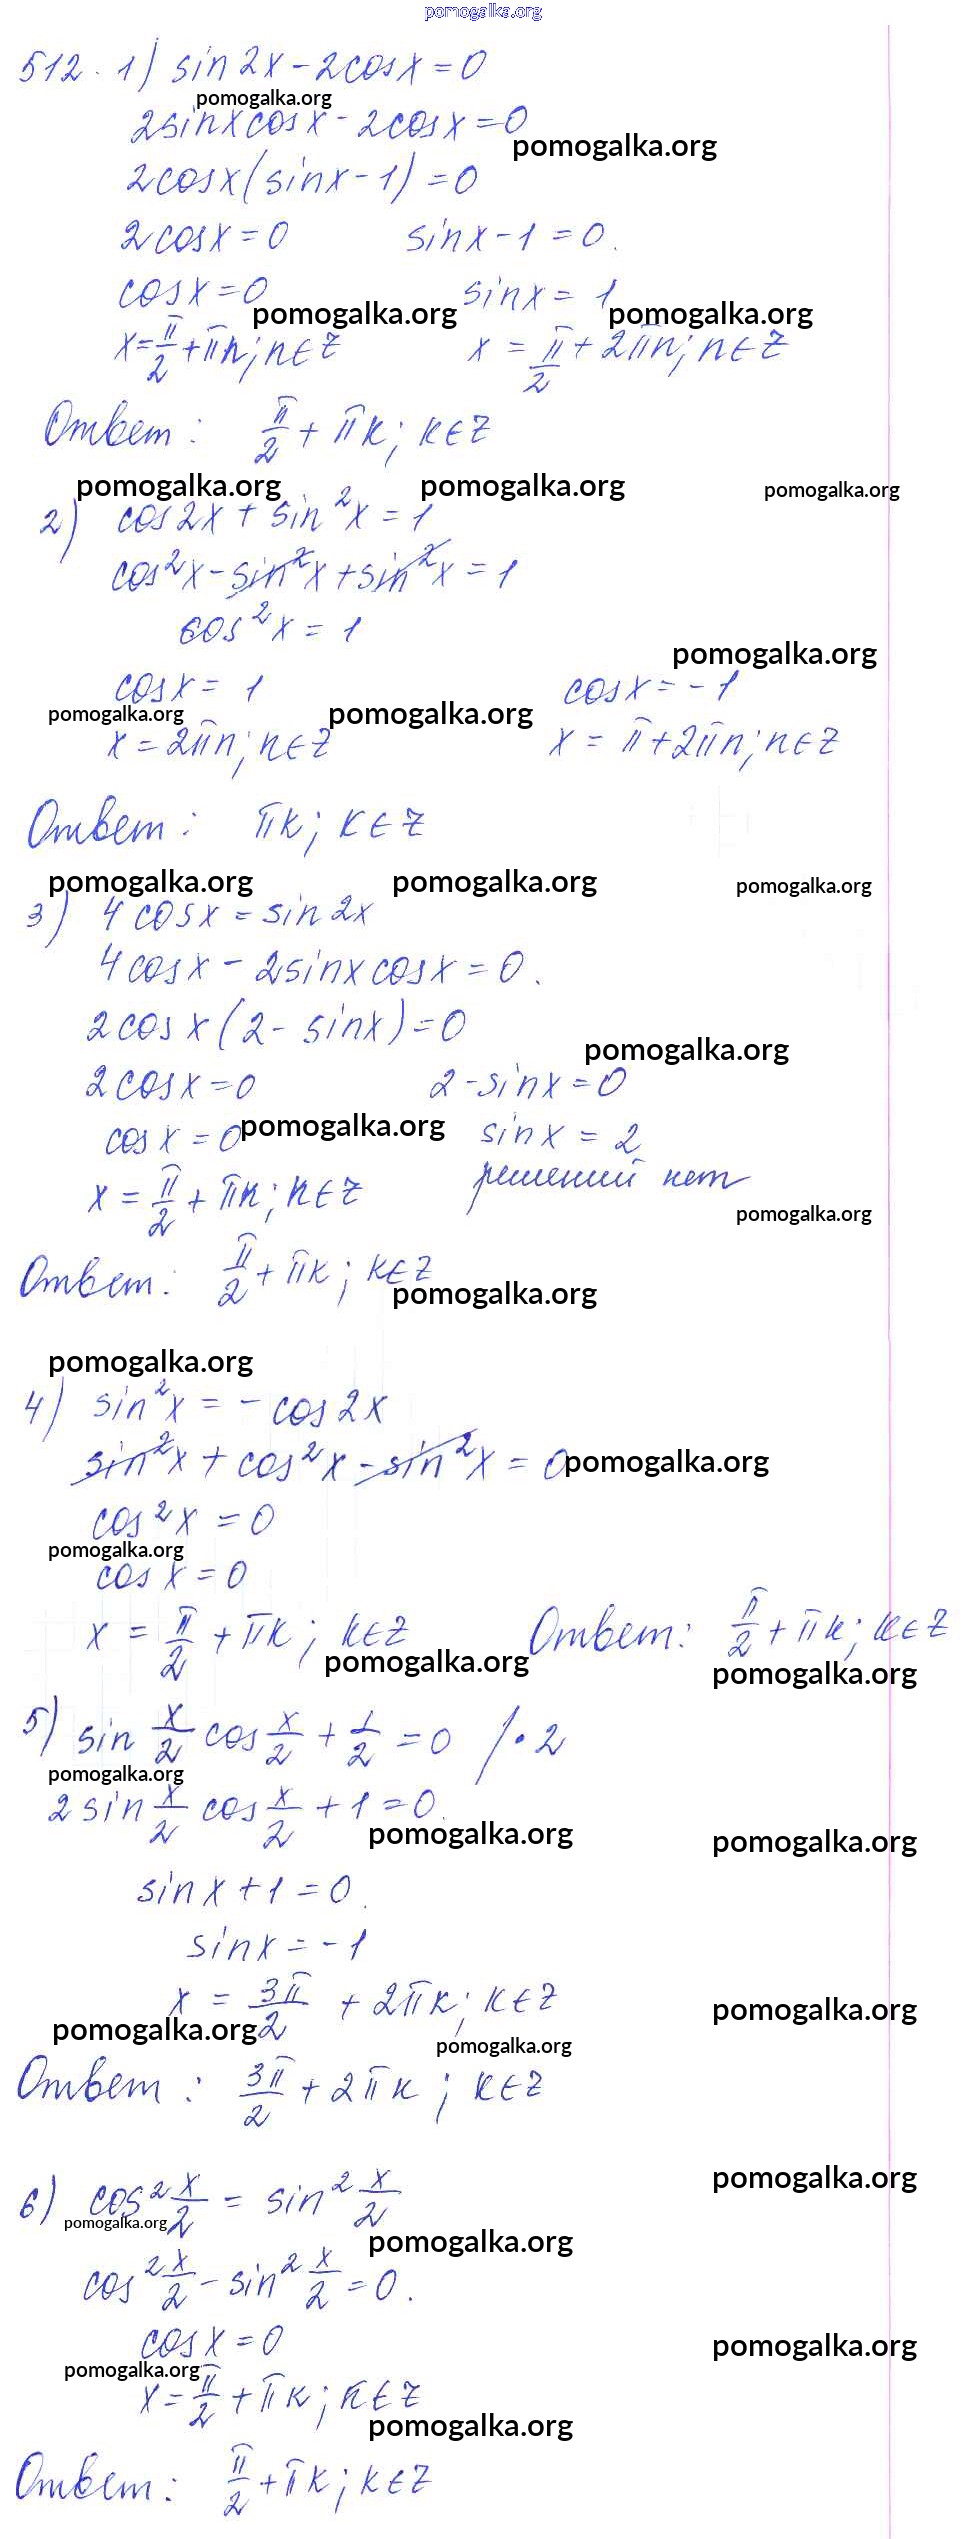 pomogalka.org
512. 1) sin2x - 2cosx = 0
pomogalka.org
2sinxcosx - 2cosx = 0
pomogalka.org
2cosx(sinx - 1) = 0
2cosx = 0 sinx - 1 = 0.
cosx = 0 sinx = 1
pomogalka.org pomogalka.org
x = π/2 + πn; n∈Z x = π/2 + 2πn; n∈Z
Ответ: π/2 + πk; k∈Z
pomogalka.org pomogalka.org pomogalka.org
2) cos2x + sin²x = 1
cos²x - sin²x + sin²x = 1
cos²x = 1
pomogalka.org
cosx = 1 cosx = -1
pomogalka.org pomogalka.org
x = 2πn; n∈Z x = π + 2πn; n∈Z
Ответ: πk; k∈Z
pomogalka.org pomogalka.org pomogalka.org
3) 4cosx = sin2x
4cosx - 2sinxcosx = 0.
2cosx(2 - sinx) = 0
pomogalka.org
2cosx = 0 2 - sinx = 0
cosx = 0 pomogalka.org sinx = 2
x = π/2 + πk; k∈Z решений нет
pomogalka.org
Ответ: π/2 + πk; k∈Z
pomogalka.org
pomogalka.org
4) sin²x = -cos2x
sin²x + cos²x - sin²x = 0
pomogalka.org
cos²x = 0
pomogalka.org
cosx = 0
x = π/2 + πk; k∈Z Ответ: π/2 + πk; k∈Z
pomogalka.org pomogalka.org
5) sin x/2 cos x/2 + 1/2 = 0 /·2
pomogalka.org
2sin x/2 cos x/2 + 1 = 0.
pomogalka.org pomogalka.org
sinx + 1 = 0.
sinx = -1
x = 3π/2 + 2πk; k∈Z
pomogalka.org
pomogalka.org pomogalka.org
Ответ: 3π/2 + 2πk; k∈Z
pomogalka.org
6) cos² x/2 = sin² x/2
pomogalka.org pomogalka.org
cos² x/2 - sin² x/2 = 0.
cosx = 0
pomogalka.org
pomogalka.org
x = π/2 + πk; k∈Z
pomogalka.org
Ответ: π/2 + πk; k∈Z